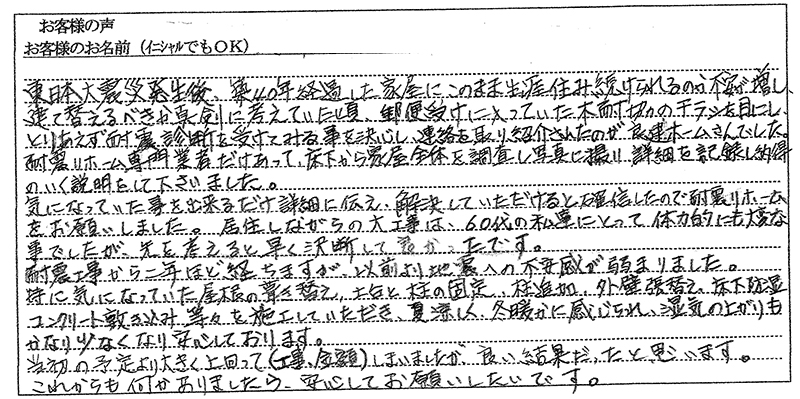 お客様の声
お客様のお名前（イニシャルでもOK）
東日本大震災発生後、築40年経過した家屋にこのまま生涯住み続けられるのか不安が増し、
建て替えるべきか真剣に考えていた頃、郵便受けに入っていた木耐協のチラシを目にし、
とりあえず耐震診断を受けてみる事を決心し、連絡を取り紹介されたのが良建ホームさんでした。
耐震リホーム専門業者だけあって、床下から家屋全体を調査し写真に撮り、詳細を記録し納得
のいく説明をして下さいました。
気になっていた事を出来るだけ詳細に伝え、解決していただけると確信したので耐震リホーム
をお願いしました。居住しながらの大工事は、60代の私達にとって体力的にも大変な
事でしたが、先を考えると早く決断して良かったです。
耐震工事から二年ほど経ちますが、以前より地震への不安感が弱まりました。
特に気になっていた屋根の葺き替え、土台と柱の固定、柱追加、外壁張替え、床下防湿
コンクリート敷き込み等々を施工していただき、夏涼しく、冬暖かに感じられ、湿気の上がりも
かなり少なくなり安心しております。
当初の予定より大きく上回って（工事、金額）しまいましたが、良い結果だったと思います。
これからも何かありましたら、安心してお願いしたいです。